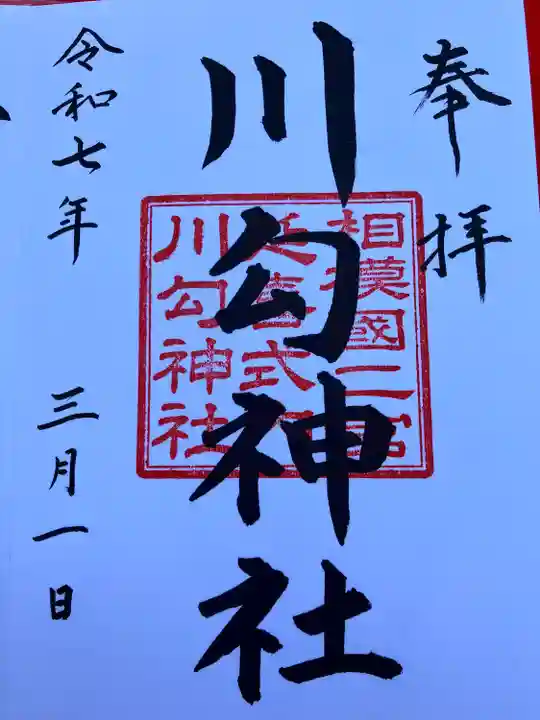 奉拝
川勾神社
相模國二宮
延喜式内
川勾神社
令和七年 三月一日